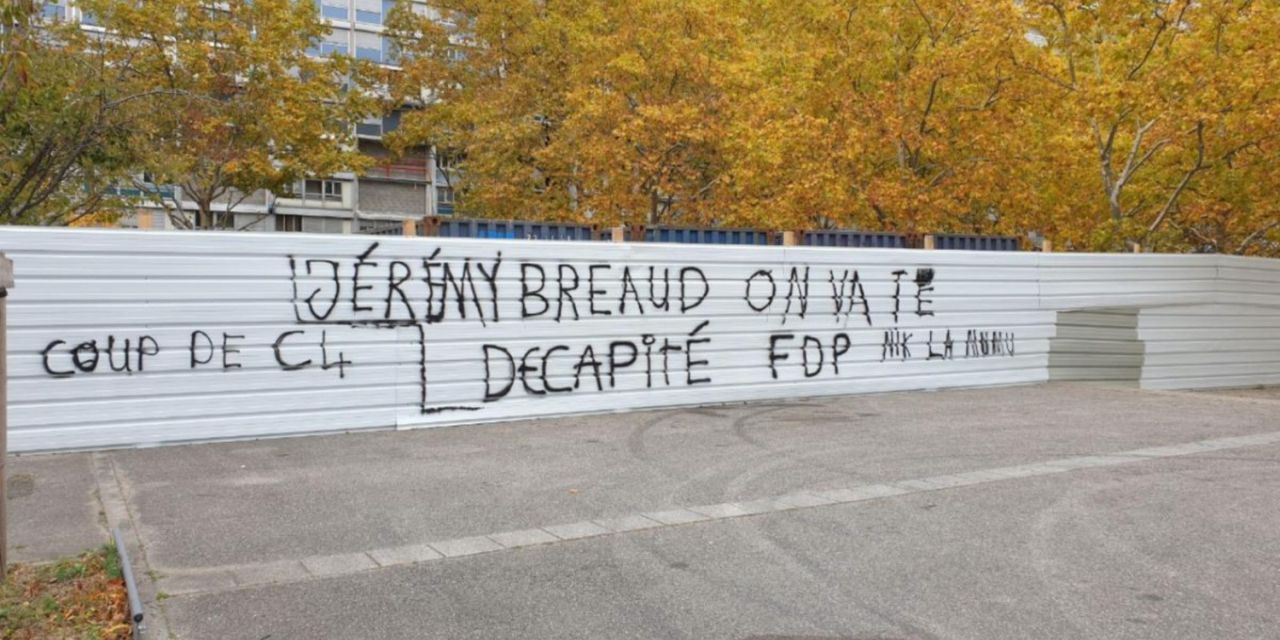 JÉRÉMY BREAUD ON VA TE
COUP DE C4
DECAPITÉ FDP NIK LA MUMU